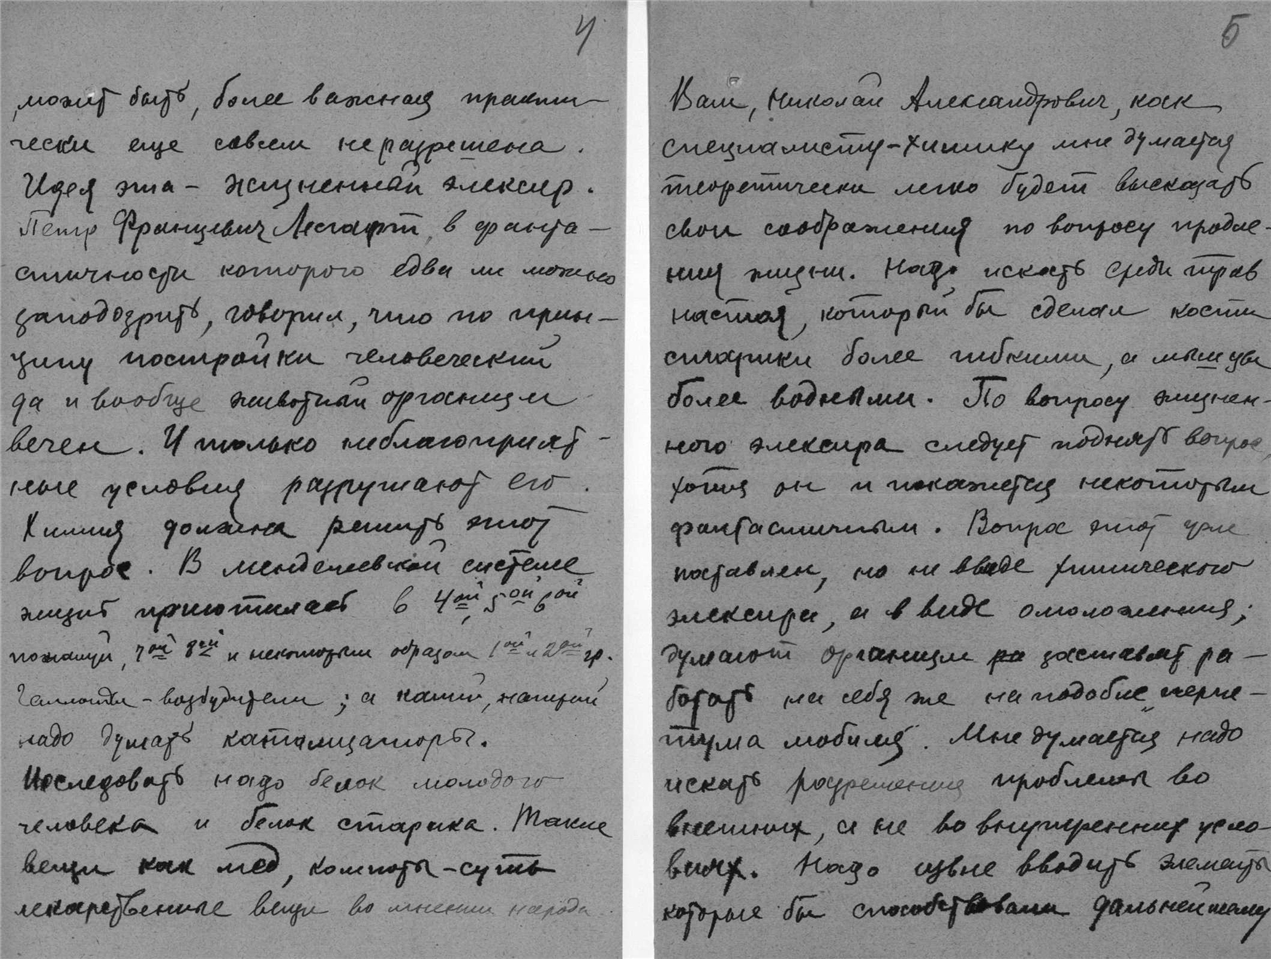 4
,может быть, более важная практи-
чески еще совсем неразрешена.
Идея эта - жизненный элексир.
Петр Францевич Лесгафт, в фанта-
стичности которого едва ли можно
заподозрить, говорил, что по прин-
ципу постройки человеческий
да и вообще животный организм
вечен. И только неблагоприят-
ные условия разрушают его.
Химия должна решить этот
вопрос. В менделеевской системе
жизнь приютилась в 4ой, 5ой 6ой
пожалуй, 7ой 8ой и некоторым образом 1ой и 2ой гр.
Галлоиды - возбудители; а калий, натрий
надо думать катализаторы.
Исследовать надо белок молодого
человека и белок старика. Такие
вещи как мед, компоты - суть
лекарственные вещи во мнении народа
5
Вам, Николай Александрович, как
специалисту-химику мне думается
теоретически легко будет высказать
свои соображения по вопросу продле-
ния жизни. Надо искать среди трав
настоя, который бы сделал кости
старики более гибкими, а мышцы
более водными. По вопросу жизнен-
ного элексира следует поднять вопрос,
хотя он и покажется некоторым
фантастичным. Вопрос этот уже
поставлен, но не в виде химического
элексира, а в виде омоложения;
думают организм ра заставлят ра-
ботать на себя же на подобие "перпе-
тума мобиля. Мне думается надо
искать разрешения проблемы во
внешних, а не во внутренних усло-
виях. Надо извне вводить элементы
которые бы способствовали дальнейшему